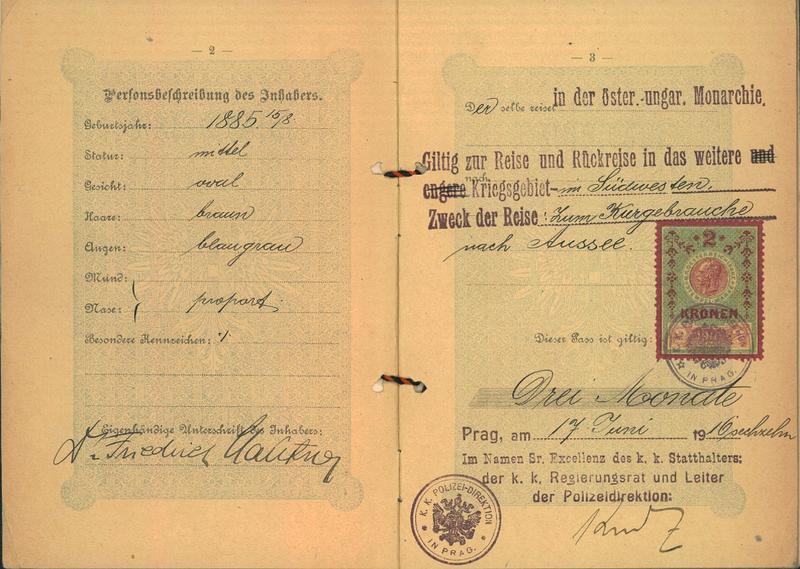 — 2 —
Personsbeschreibung des Inhabers.
Geburtsjahr: 1885 15/8.
Statur: mittel
Gesicht: oval
Haare: braun
Augen: blaugrau
Mund:
Nase: proport.
Besondere Kennzeichen: ./.
Eigenhändige Unterschrift des Inhabers:
Dr. Friedrich
— 3 —
Der selbe reiset in der öster.-ungar. Monarchie.
Giltig zur Reise und Rückreise in das weitere und
engere Kriegsgebiet - im Südwesten.
nach
Zweck der Reise: Zum Kurgebrauche
nach Aussee.
2
KRONEN
IN PRAG.
Dieser Pass ist giltig:
Drei Monate
Prag, am 17 Juni 1916 sechzehn
Im Namen Sr. Excellenz des k. k. Statthalters:
der k. k. Regierungsrat und Leiter
der Polizeidirektion:
K. K. POLIZEI-DIREKTION
IN PRAG.